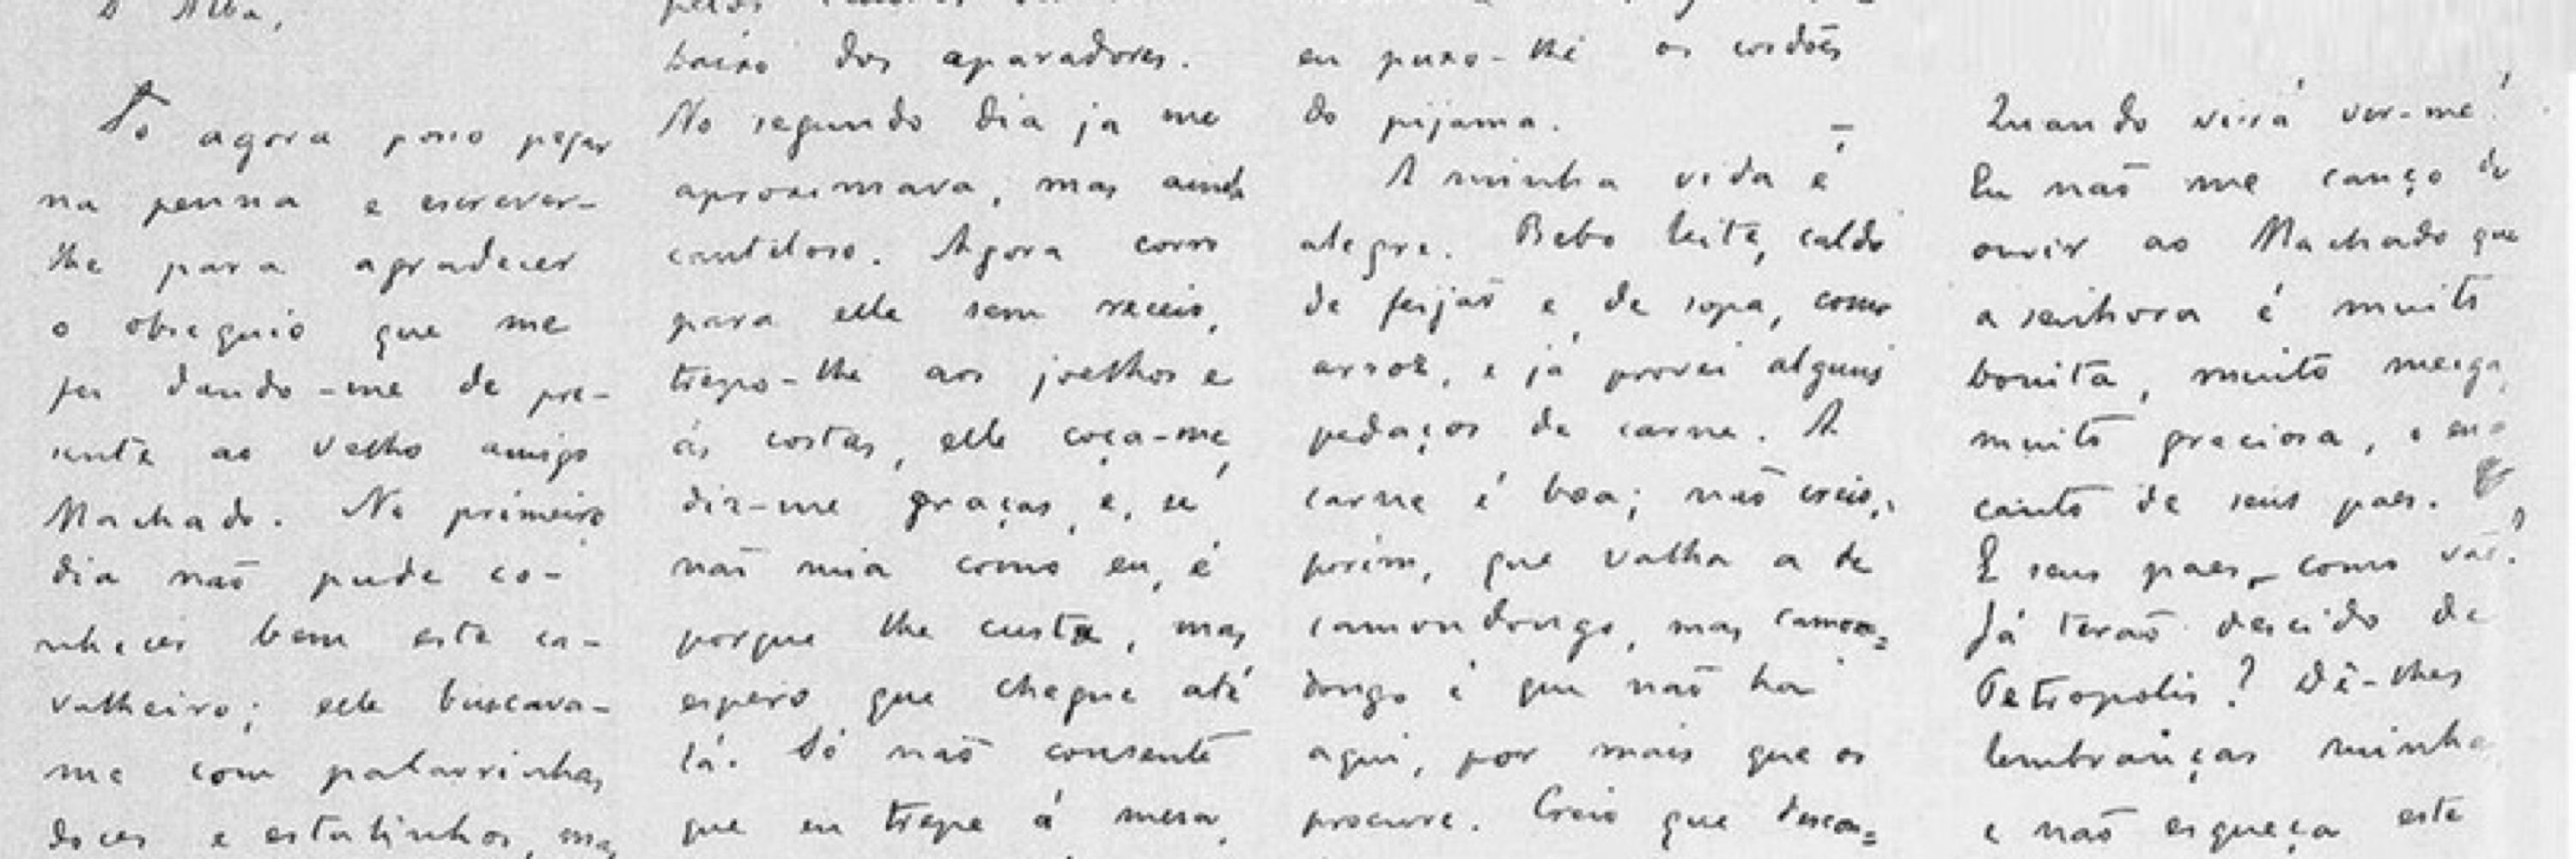 D Alba,
Só agora posso pegar
na penna e escrever-
lhe para agradecer
o obsequio que me
fez dando-me de pre-
sente ao velho amigo
Machado. No primeiro
dia não pude co-
nhecer bem este ca-
valheiro; elle buscava-
me com palavrinhas
doces e estalinhos, mas
baixo dos aparadores.
No segundo dia ja me
aproximava, mas ainda
cauteloso. Agora corro
para elle sem receio,
trepo-lhe aos joelhos e
ás costas, elle coça-me,
diz-me graças, e, se
não mia como eu, é
porque lhe custa, mas
espero que chegue até
lá. Só não consente
que eu trepe á mesa,
eu puxo-lhe os cordões
do pijama.
A minha vida é
alegre. Bebo leite, caldo
de feijão e de sopa, como
arroz, e já provei alguns
pedaços de carne. A
carne é boa; não creio,
porém, que valha a de
camondongo, mas camon=
dongo é que não ha
aqui, por mais que os
procure. Creio que descon=
Quando virá ver-me?
Eu não me canço de
ouvir ao Machado que
a senhora é muito
bonita, muito meiga,
muito graciosa, e en=
canto de seus paes.
E seus paes, como vão?
Já terão descido de
Petropolis? Dê-lhes
lembranças minhas
e não esqueça este